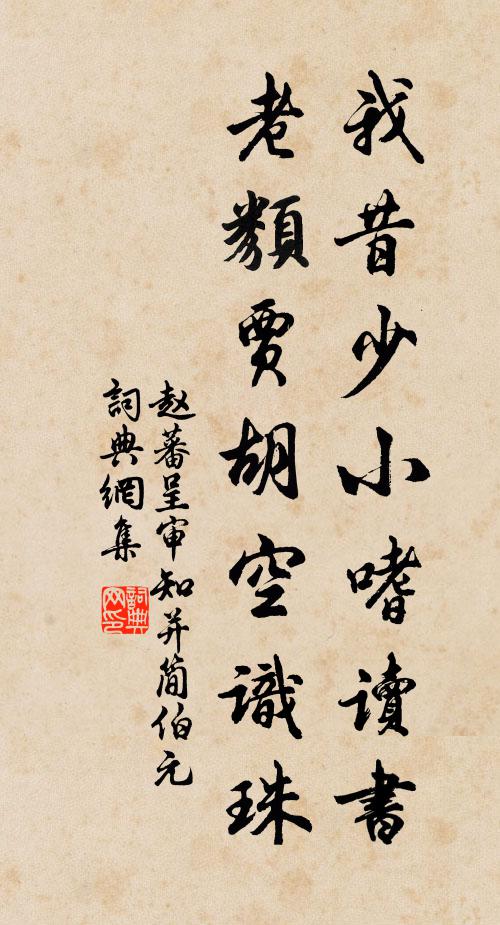 我昔少小嗜讀書
老類賈胡空識珠
赵蕃呈审知并简伯元
詞典網集
詞典网印